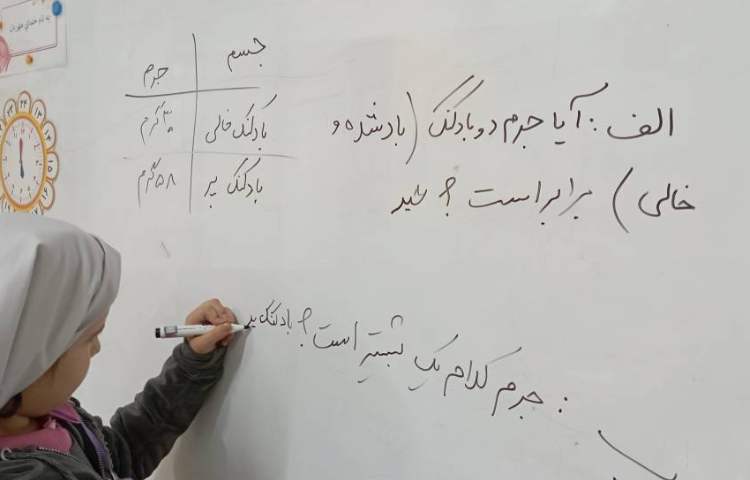 به نام خدای مهربان
جسم | جرم
بادکنک خالی | ۳۰ گرم
بادکنک پر | ۵۸ گرم
الف : آیا جرم دو بادکنک (باد شده و
خالی) برابر است ؟ خیر
: جرم کدام یک بیشتر است ؟ بادکنک پر